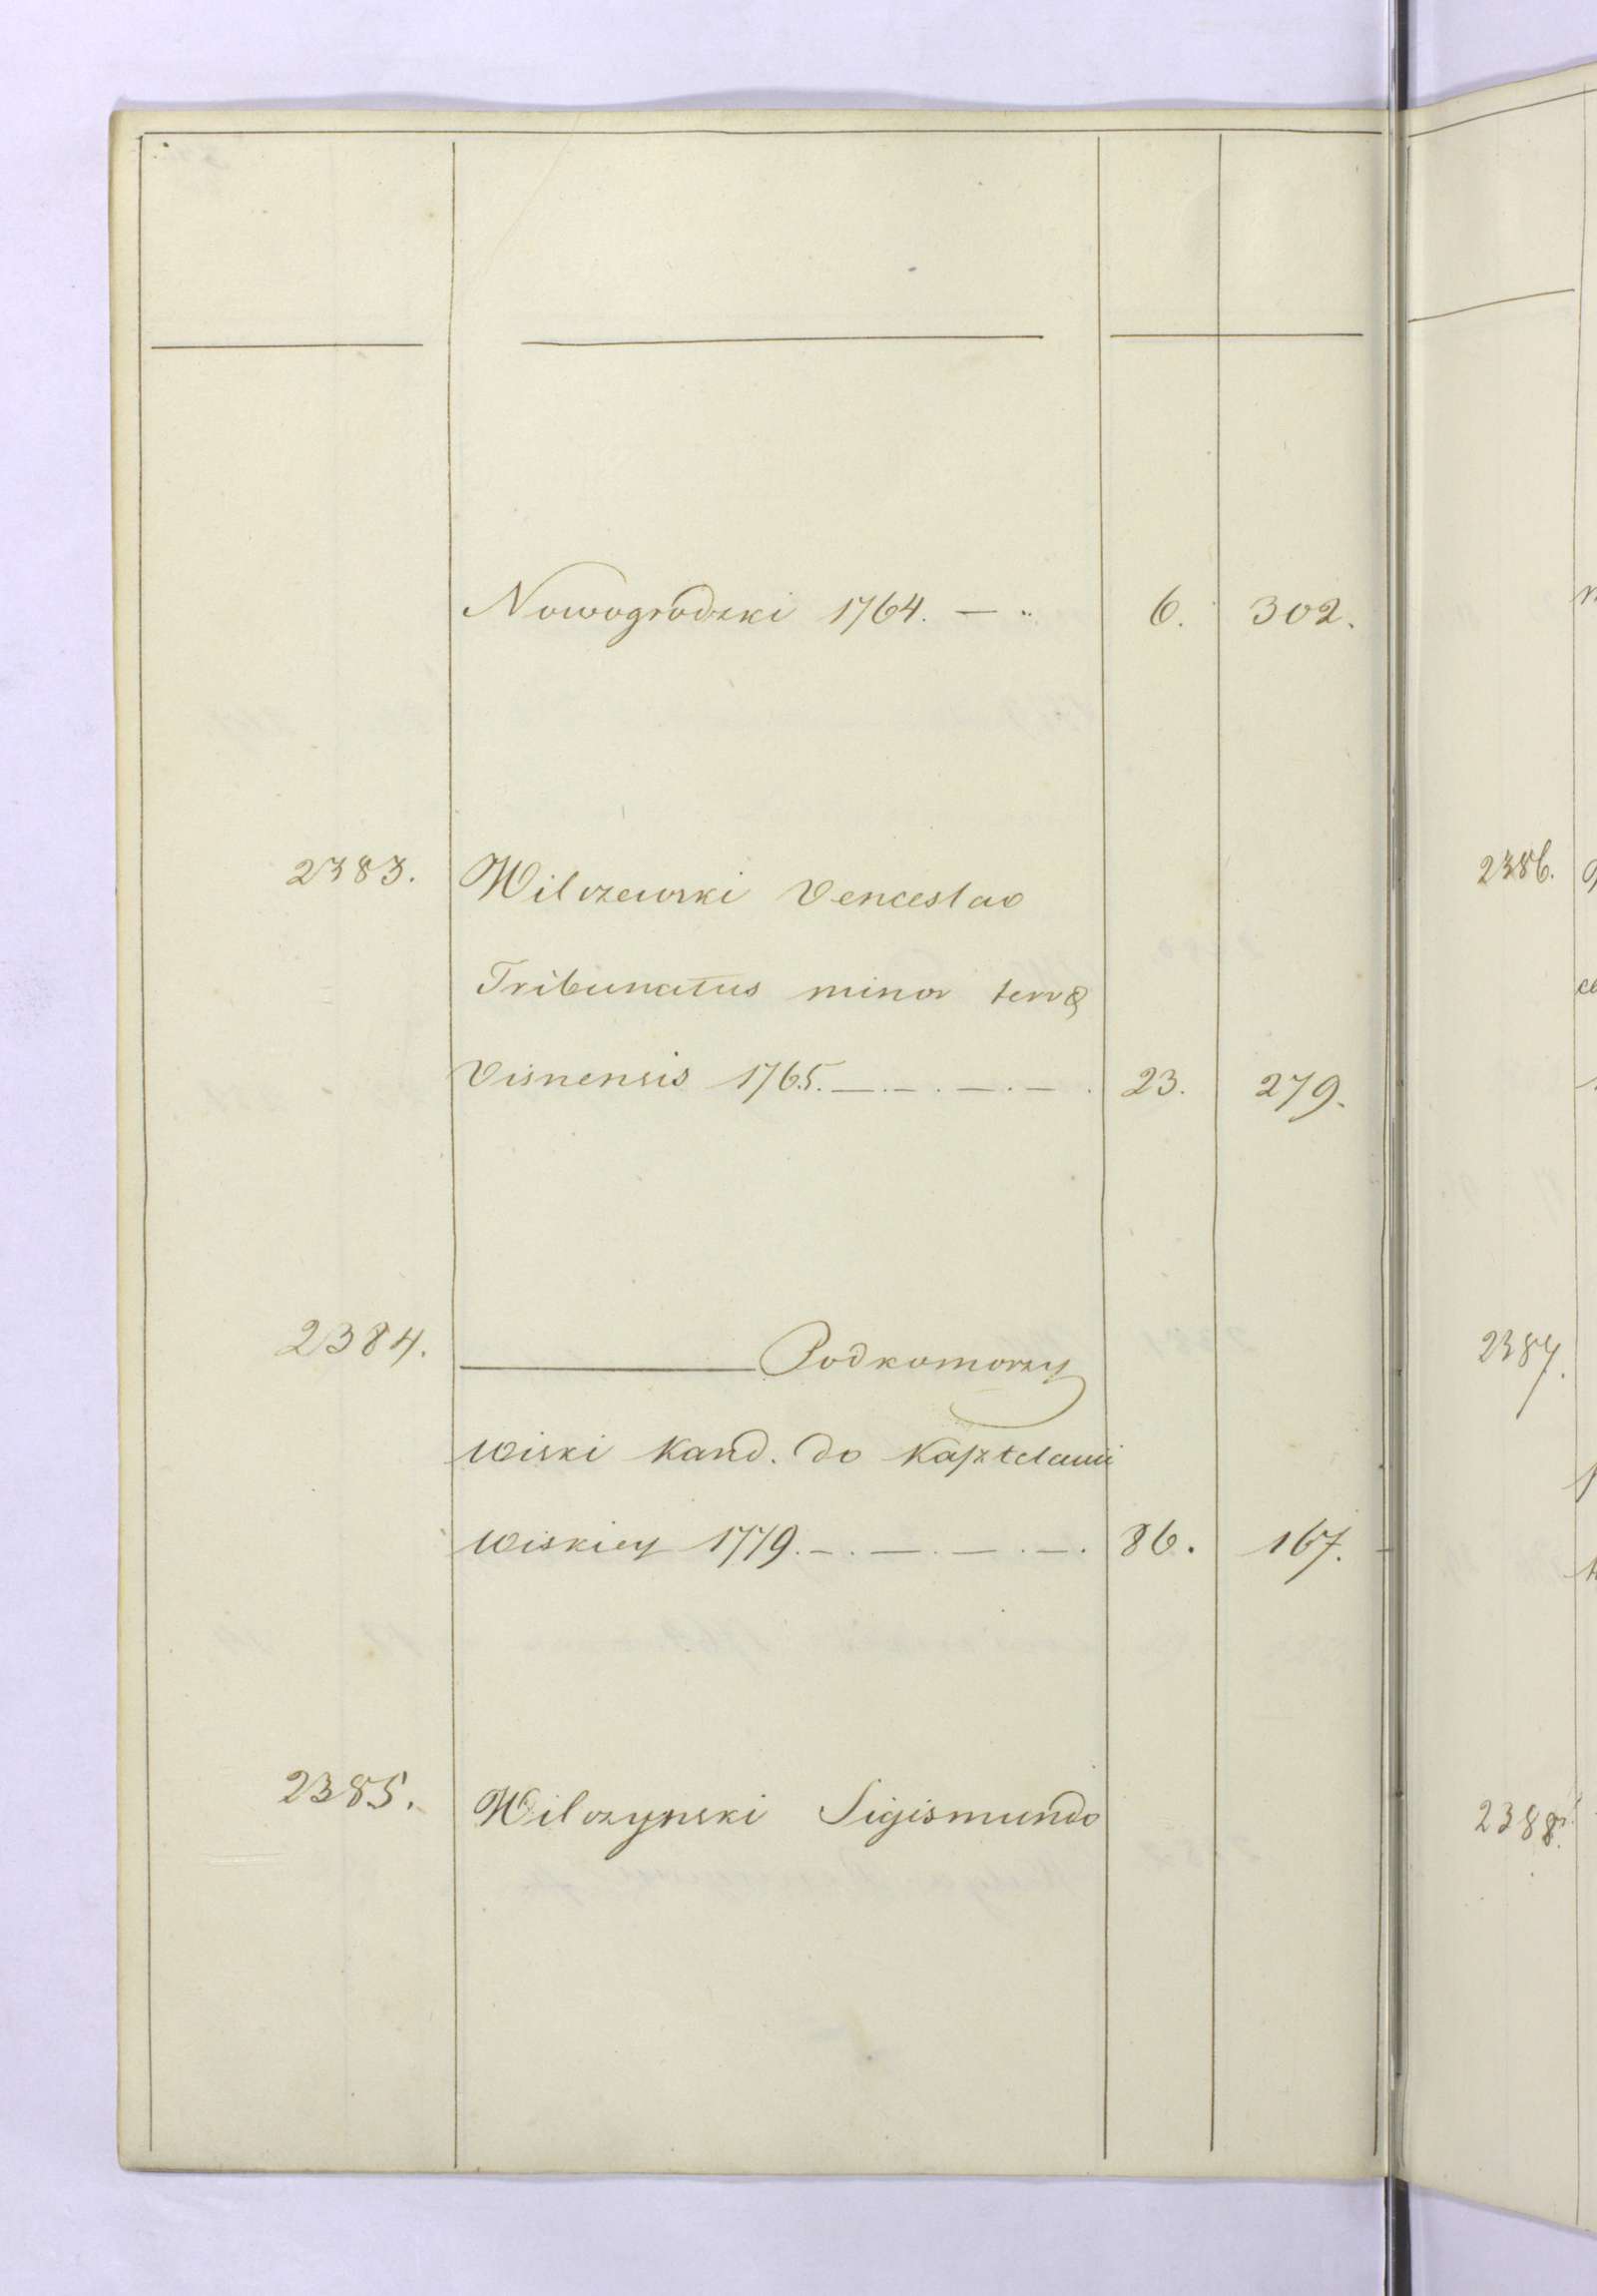 Nowogrodzki 1764. — .. 6. 302.
2383. Wilczewski Venceslao
Tribunatus minor terræ
Visnensis 1765. — . — . — . — . 23. 279.
2384. ——— Podkomorzy
Wiski Kand. do Kasztelanii
Wiskiey 1779. — . — . — . — . 86. 167.
2385. Wilczynski Sigismundo
2386.
2387.
2388.